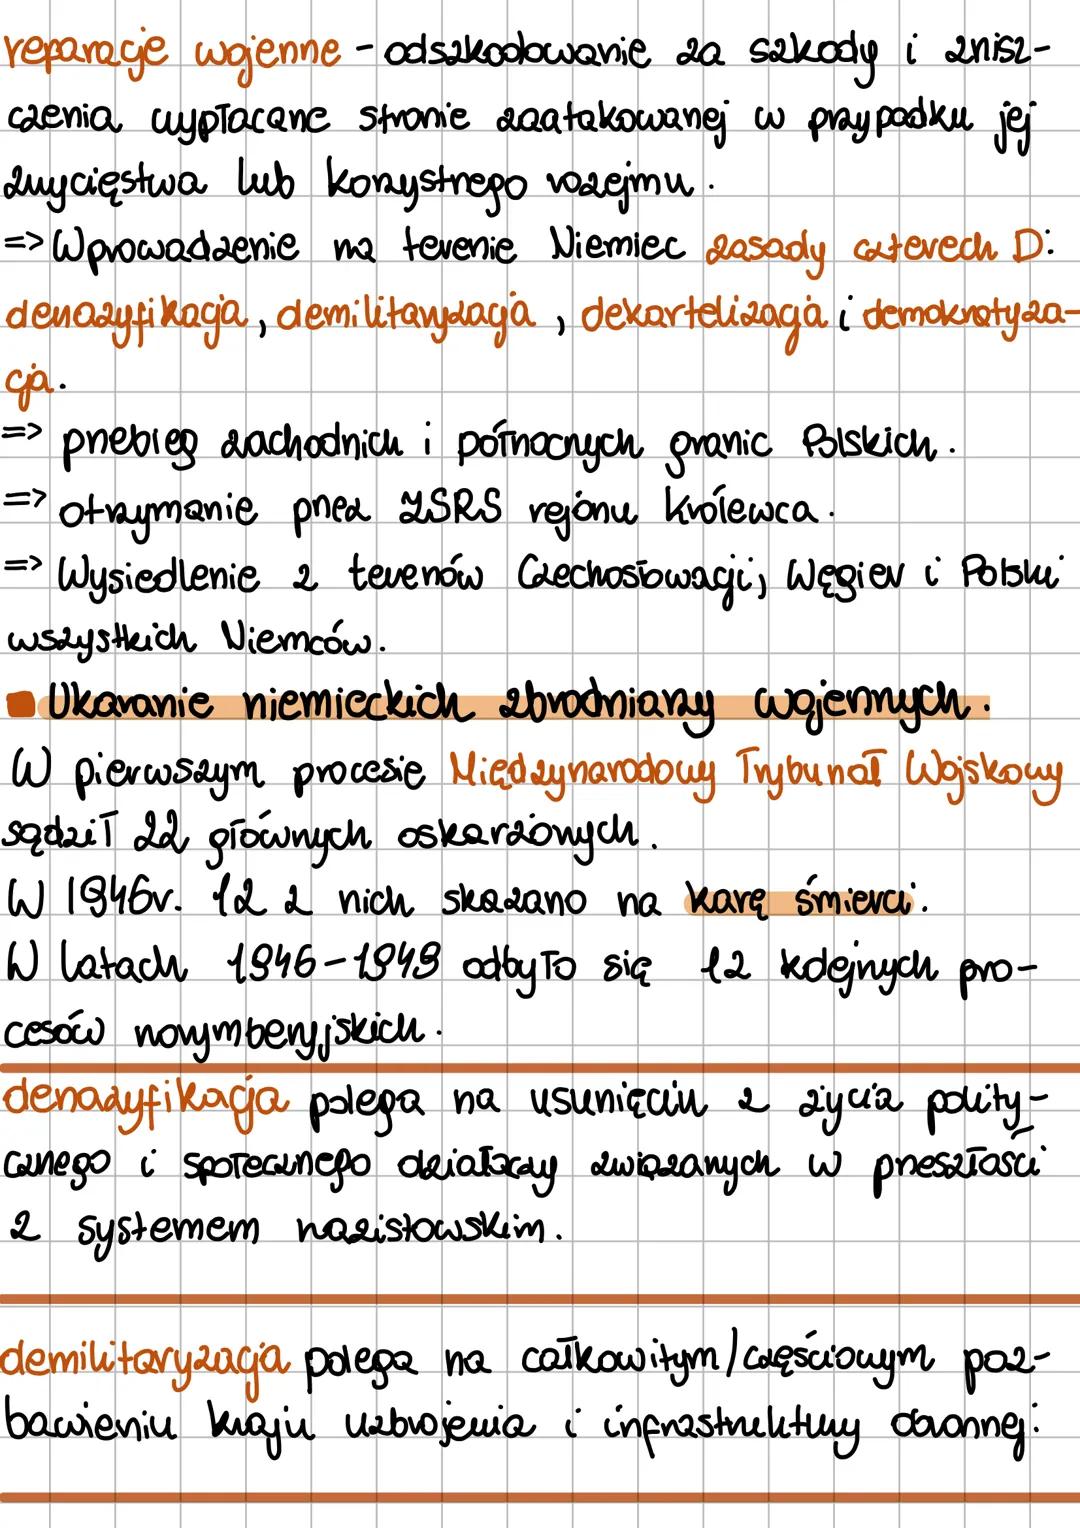 reparacje wojenne - odszkodowanie za szkody i znisz-
czenia wypłacane stronie zaatakowanej w przypadku jej
zwycięstwa lub korzystnego rozejmu.
=> Wprowadzenie na terenie Niemiec zasady czterech D:
denazyfikacja, demilitaryzacja, dekartelizacja i demokratyza-
cja.
=> przebieg zachodnich i północnych granic Polskich.
=> otrzymanie przez ZSRS rejonu Królewca.
=> Wysiedlenie z terenów Czechosłowacji, Węgier i Polski
wszystkich Niemców.
Ukaranie niemieckich zbrodniarzy wojennych.
W pierwszym procesie Międzynarodowy Trybunał Wojskowy
sądził 22 głównych oskarżonych.
W 1946r. 12 z nich skazano na karę śmierci.
W latach 1946-1949 odbyło się 12 kolejnych pro-
cesów norymberyjskich.
denazyfikacja polega na usunięciu z życia polity-
cznego i społecznego działaczy związanych w przeszłości
z systemem nazistowskim.
demilitaryzacja polega na całkowitym/częściowym poz-
bawieniu kraju uzbrojenia i infrastruktury obronnej.